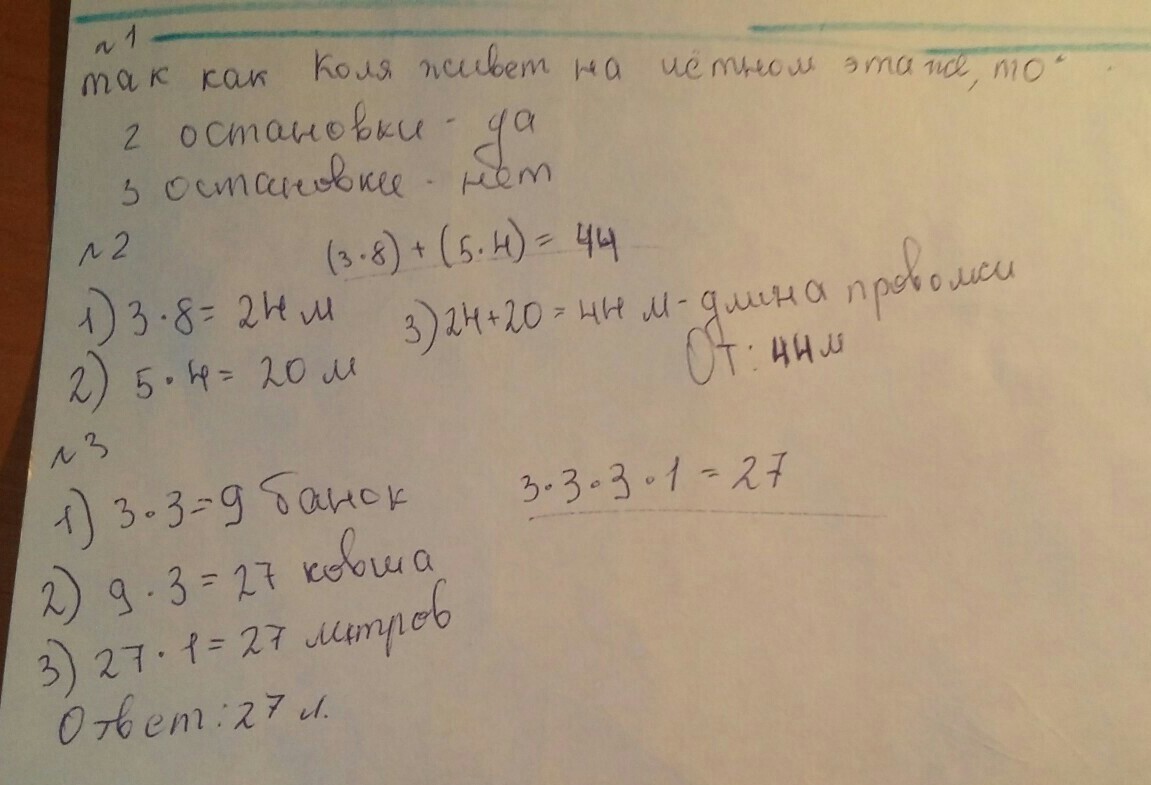 №1
так как Коля живет на чётном этаже, то
2 остановки - да
3 остановки - нет
№2 (3·8) + (5·4) = 44
1) 3·8 = 24 м 3) 24+20 = 44 м - длина проволки
2) 5·4 = 20 м От: 44 м
№3
1) 3·3=9 банок 3·3·3·1 = 27
2) 9·3 = 27 ковша
3) 27·1 = 27 литров
Ответ: 27 л.